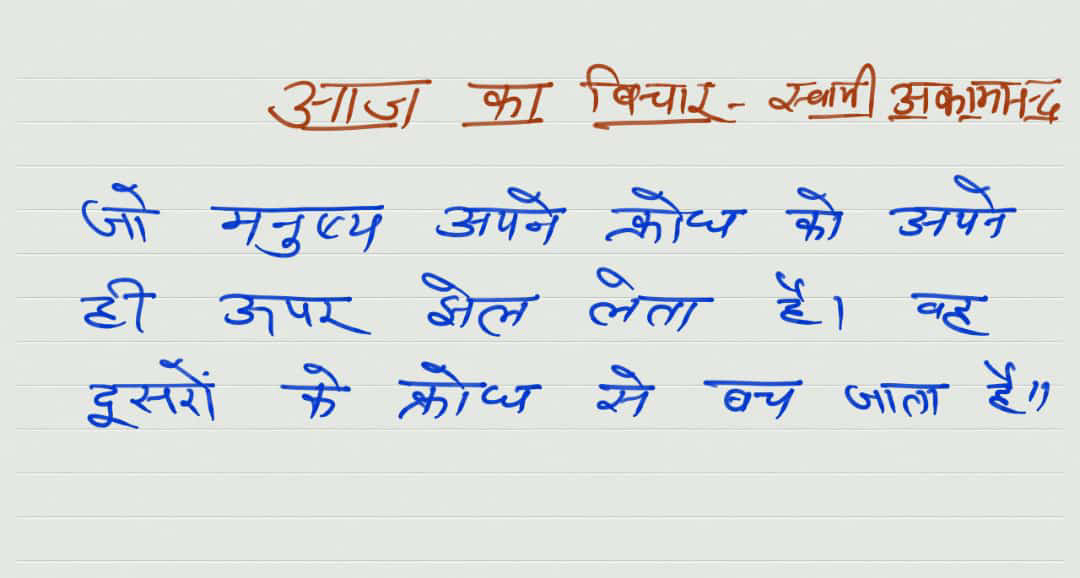 आज का विचार - स्वामी अकामानन्द
जो मनुष्य अपने क्रोध को अपने
ही ऊपर झेल लेता है। वह
दूसरों के क्रोध से बच जाता है॥